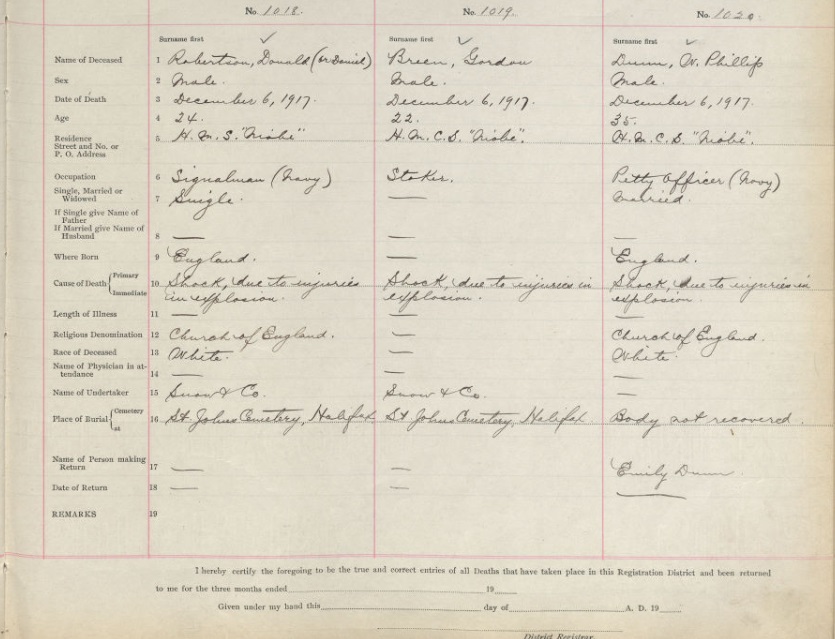 No. 1018. No. 1019. No. 1020.
Surname first Surname first Surname first
Name of Deceased 1 Robertson, Donald (or Daniel) Breen, Gordon Dunn, W. Phillip
Sex 2 Male. Male. Male.
Date of Death 3 December 6, 1917. December 6, 1917. December 6, 1917.
Age 4 24. 22. 35.
Residence 5 H.M.S. "Niobe" H.M.C.S. "Niobe". H.M.C.S. "Niobe".
Street and No. or
P. O. Address
Occupation 6 Signalman (Navy) Stoker. Petty Officer (Navy)
Single, Married or
Widowed 7 Single. — Married.
If Single give Name of
Father
If Married give Name of
Husband 8 — — —
Where Born 9 England. — England.
Cause of Death { Primary 10 Shock, due to injuries Shock, due to injuries in Shock, due to injuries in
Immediate in explosion. explosion. explosion.
Length of Illness 11 — — —
Religious Denomination 12 Church of England. — Church of England.
Race of Deceased 13 White. — White.
Name of Physician in at-
tendance 14 — — —
Name of Undertaker 15 Snow & Co. Snow & Co. —
Place of Burial { Cemetery at 16 St Johns Cemetery, Halifax St Johns Cemetery, Halifax Body not recovered.
Name of Person making
Return 17 — — Emily Dunn
Date of Return 18 — — —
REMARKS 19
I hereby certify the foregoing to be the true and correct entries of all Deaths that have taken place in this Registration District and been returned
to me for the three months ended 19
Given under my hand this day of A. D. 19
District Registrar.